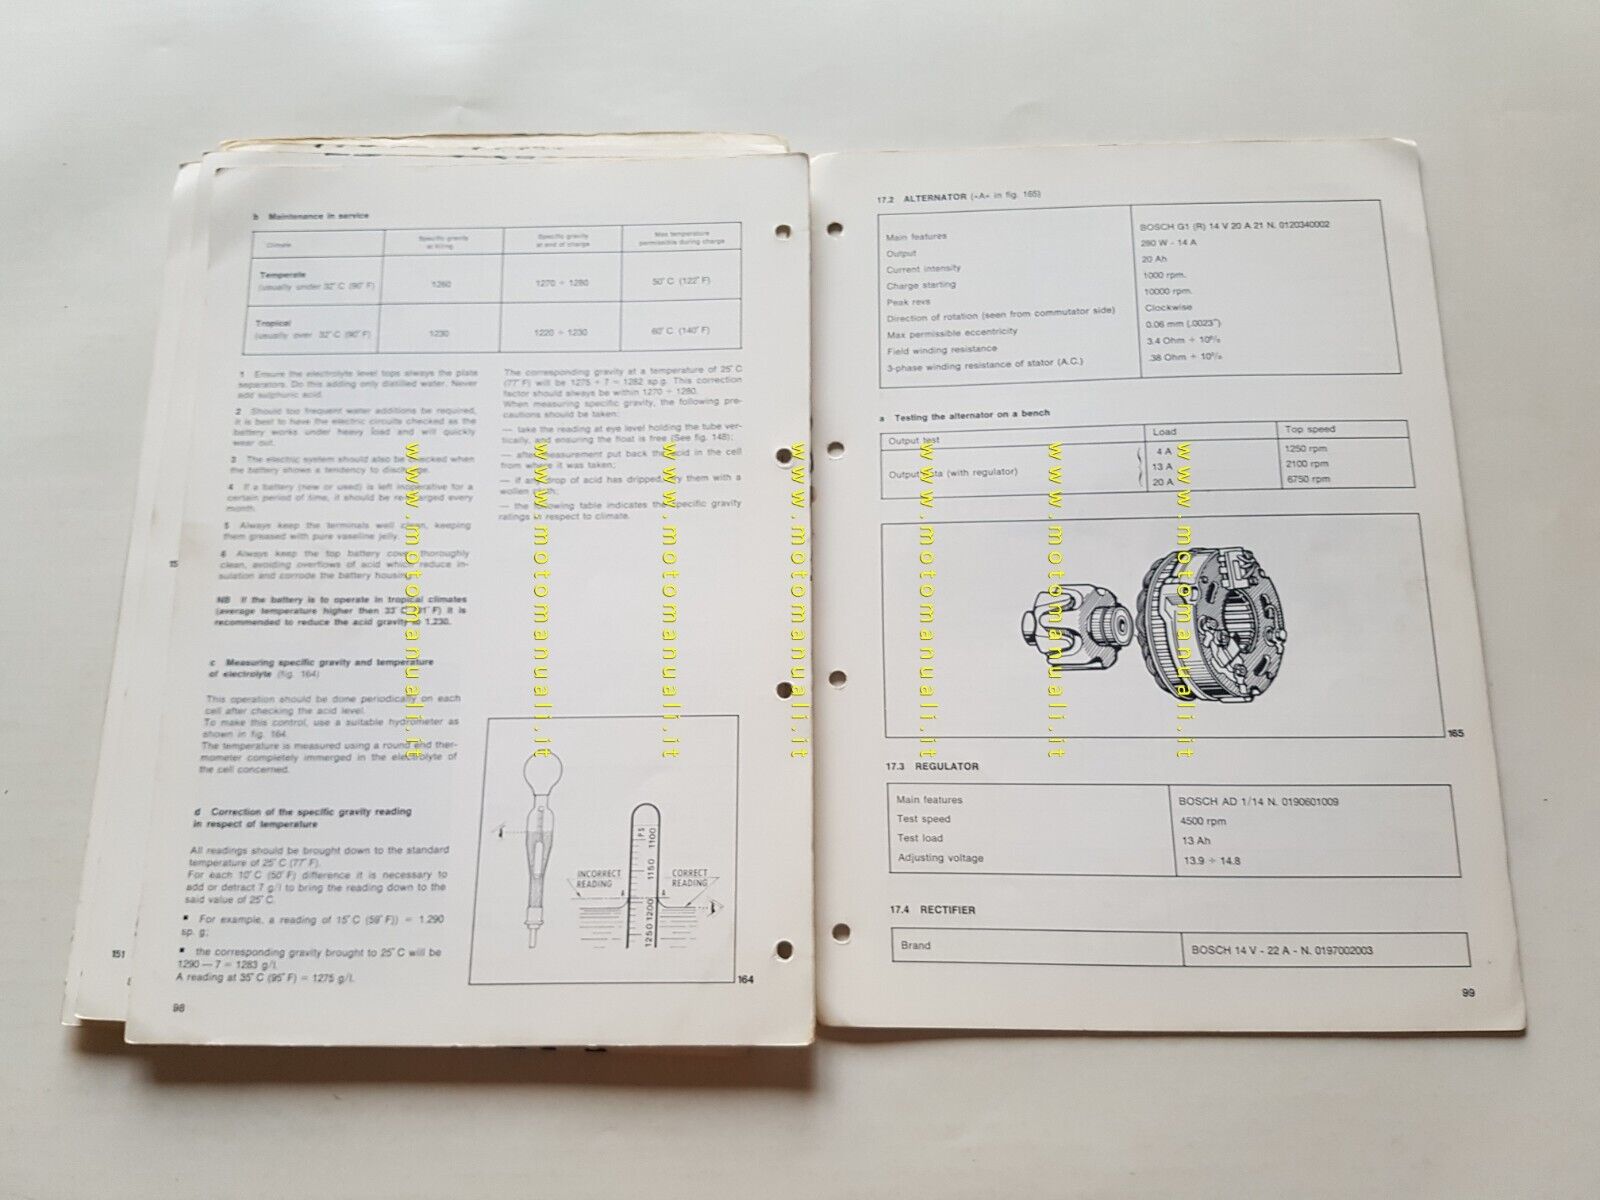 b Maintenance in service
Climate
Specific gravity
at filling
Specific gravity
at end of charge
Max temperature
permissible during charge
Temperate
(usually under 32°C (90°F)
1260
1270 ÷ 1280
50°C (122°F)
Tropical
(usually over 32°C (90°F)
1230
1220 ÷ 1230
60°C (140°F)
1 Ensure the electrolyte level tops always the plate
separators. Do this adding only distilled water. Never
add sulphuric acid.
2 Should too frequent water additions be required,
it is best to have the electric circuits checked as the
battery works under heavy load and will quickly
wear out.
3 The electric system should also be checked when
the battery shows a tendency to discharge.
4 If a battery (new or used) is left inoperative for a
certain period of time, it should be recharged every
month.
5 Always keep the terminals well clean, keeping
them greased with pure vaseline jelly.
6 Always keep the top battery cover thoroughly
clean, avoiding overflows of acid which reduce in-
sulation and corrode the battery housing.
NB If the battery is to operate in tropical climates
(average temperature higher then 33°C (91°F) it is
recommended to reduce the acid gravity to 1.230.
c Measuring specific gravity and temperature
of electrolyte (fig. 164)
This operation should be done periodically on each
cell after checking the acid level.
To make this control, use a suitable hydrometer as
shown in fig. 164
The temperature is measured using a round end ther-
mometer completely immerged in the electrolyte of
the cell concerned.
d Correction of the specific gravity reading
in respect of temperature
All readings should be brought down to the standard
temperature of 25°C (77°F).
For each 10°C (50°F) difference it is necessary to
add or detract 7 g/l to bring the reading down to the
said value of 25°C.
■ For example, a reading of 15°C (59°F)) = 1.290
sp. g;
■ the corresponding gravity brought to 25°C will be
1290 — 7 = 1283 g/l.
A reading at 35°C (95°F) = 1275 g/l.
98
The corresponding gravity at a temperature of 25°C
(77°F) will be 1275 + 7 = 1282 sp.g. This correction
factor should always be within 1270 ÷ 1280.
When measuring specific gravity, the following pre-
cautions should be taken:
— take the reading at eye level holding the tube ver-
tically, and ensuring the float is free (See fig. 148);
— after measurement put back the acid in the cell
from where it was taken;
— if any drop of acid has dripped, dry them with a
wollen cloth;
— the following table indicates the specific gravity
ratings in respect to climate.
INCORRECT
READING
CORRECT
READING
A
A
P.S
1100
1150
1200
1250
164
15
151
17.2 ALTERNATOR («A» in fig. 165)
Main features
BOSCH G1 (R) 14 V 20 A 21 N. 0120340002
Output
280 W - 14 A
Current intensity
20 Ah
Charge starting
1000 rpm.
Peak revs
10000 rpm.
Direction of rotation (seen from commutator side)
Clockwise
Max permissible eccentricity
0.06 mm (.0023")
Field winding resistance
3.4 Ohm + 10%
3-phase winding resistance of stator (A.C.)
.38 Ohm + 10%
a Testing the alternator on a bench
Output test
Load
Top speed
Output data (with regulator)
4 A
1250 rpm
13 A
2100 rpm
20 A
6750 rpm
165
17.3 REGULATOR
Main features
BOSCH AD 1/14 N. 0190601009
Test speed
4500 rpm
Test load
13 Ah
Adjusting voltage
13.9 ÷ 14.8
17.4 RECTIFIER
Brand
BOSCH 14 V - 22 A - N. 0197002003
99
www.motomanuali.it
www.motomanuali.it
www.motomanuali.it
www.motomanuali.it
www.motomanuali.it
www.motomanuali.it
www.motomanuali.it